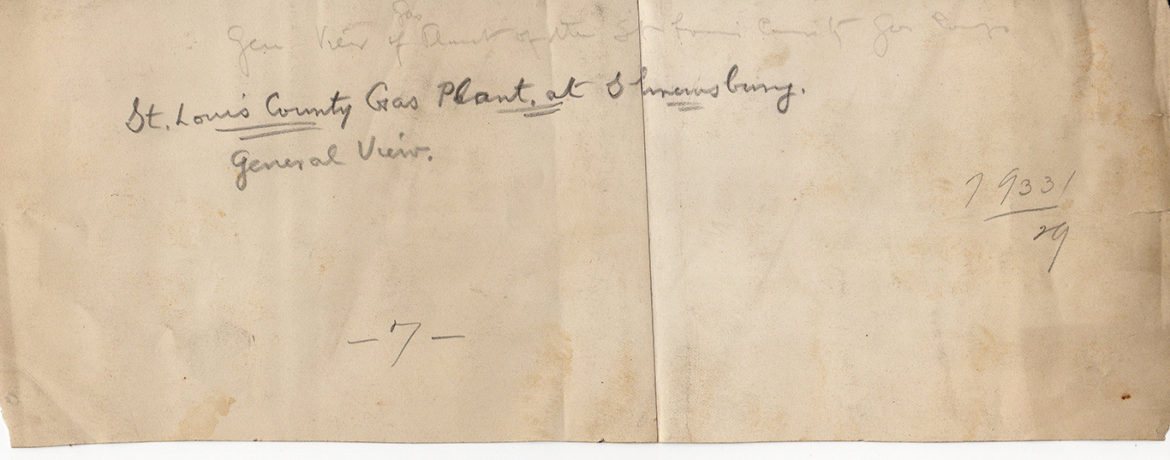 Gen View of Gas Plant of the St Louis County Gas Comp
St. Louis County Gas Plant, at Shrewsbury.
General View.
7 9331
29
-7-